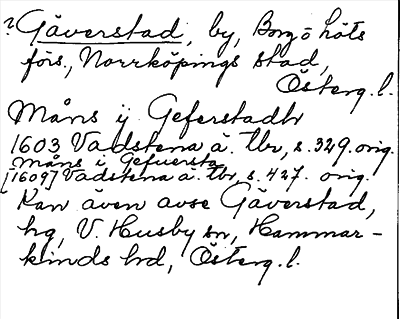 ? Gäverstad, by, Borg o Löts
förs., Norrköpings stad,
Österg. l.
Måns ij Geferstadh
1603 Vadstena ä. tbr, s. 329. orig.
Måns i Gefuersta
[1609] Vadstena ä. tbr, s. 427. orig.
Kan även avse Gäverstad,
hg, V. Husby sn, Hammar-
kinds hd, Österg. l.